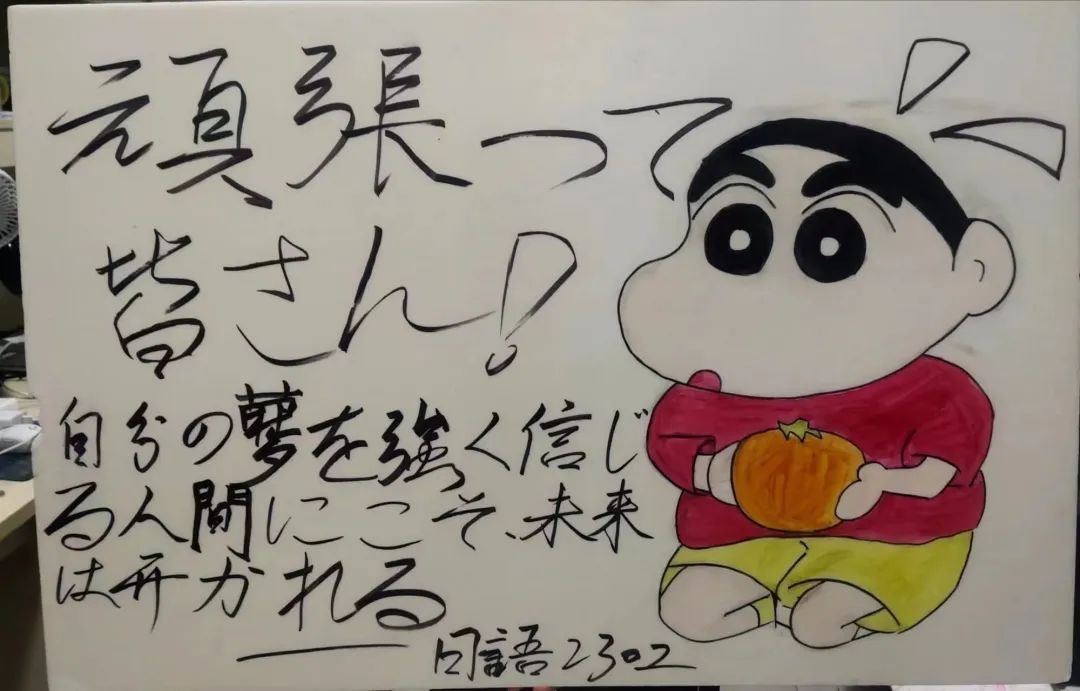 頑張って
皆さん!
自分の夢を強く信じ
る人間にこそ、未来
は开かれる
日語2302